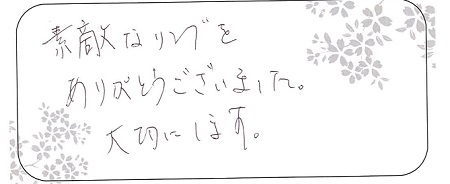 素敵なリングを
ありがとうございました。
大切にします。